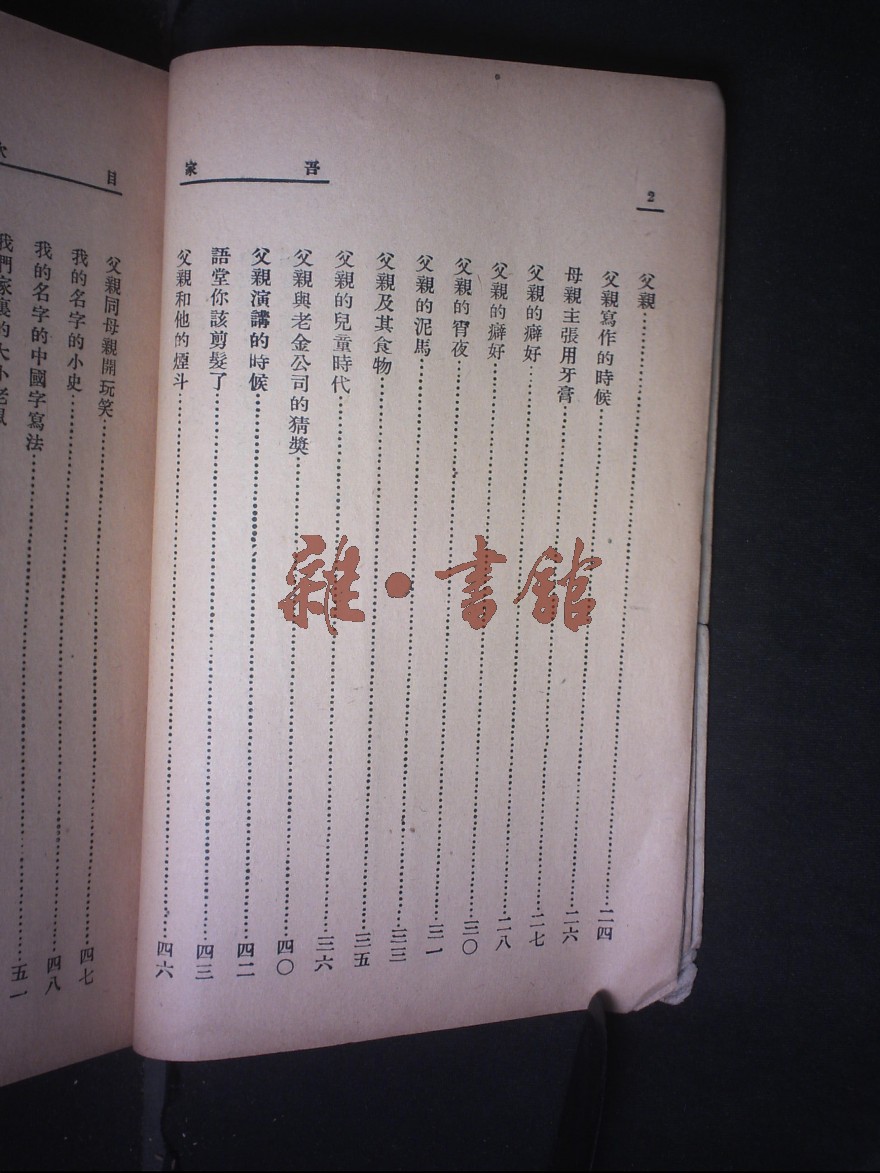 2
吾家
父親……二四
父親寫作的時候……二六
母親主張用牙膏……二七
父親的癖好……二八
父親的癖好……三〇
父親的宵夜……三一
父親的泥馬……三三
父親及其食物……三五
父親的兒童時代……三六
父親與老金公司的猜獎……四〇
父親演講的時候……四二
語堂你該剪髮了……四三
父親和他的煙斗……四六
目次
父親同母親開玩笑……四七
我的名字的小史……四八
我的名字的中國字寫法……五一
我們家裏的大小老鼠
雜·書館